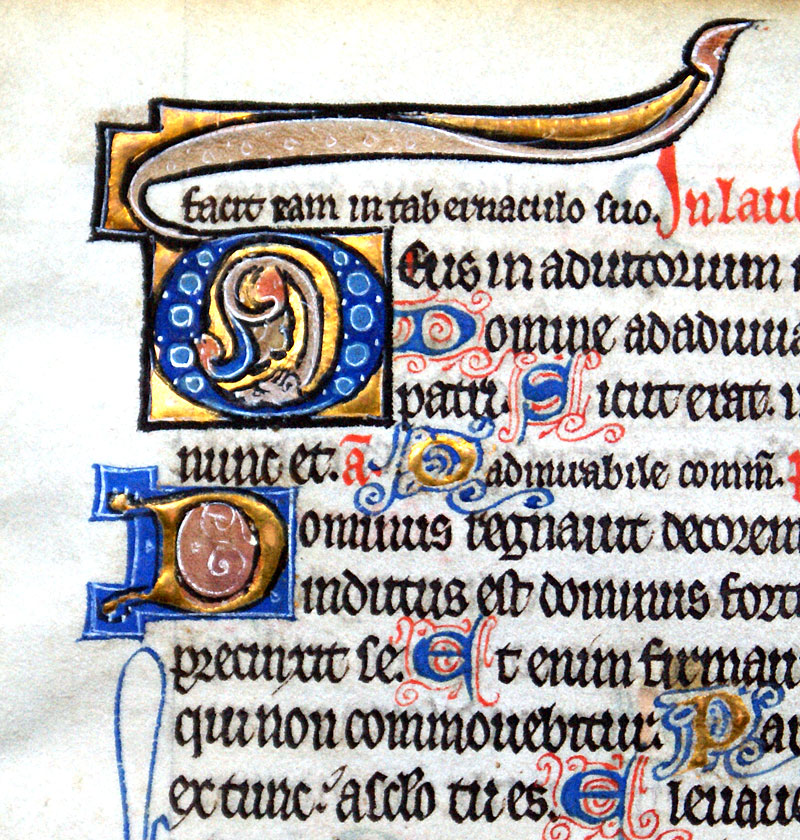 facit eam in tabernaculo suo. In lau
Deus in adiutorium
Domine ad adiuua
patri. Sicut erat.
nunc et. a̅ O admirabile com̅m.
Dominus regnauit decorem
indutus est dominus forti
precinxit se. Et enim firmaui
qui non commouebitur. Pa
ex tunc. a sclo tu es. Eleuaue